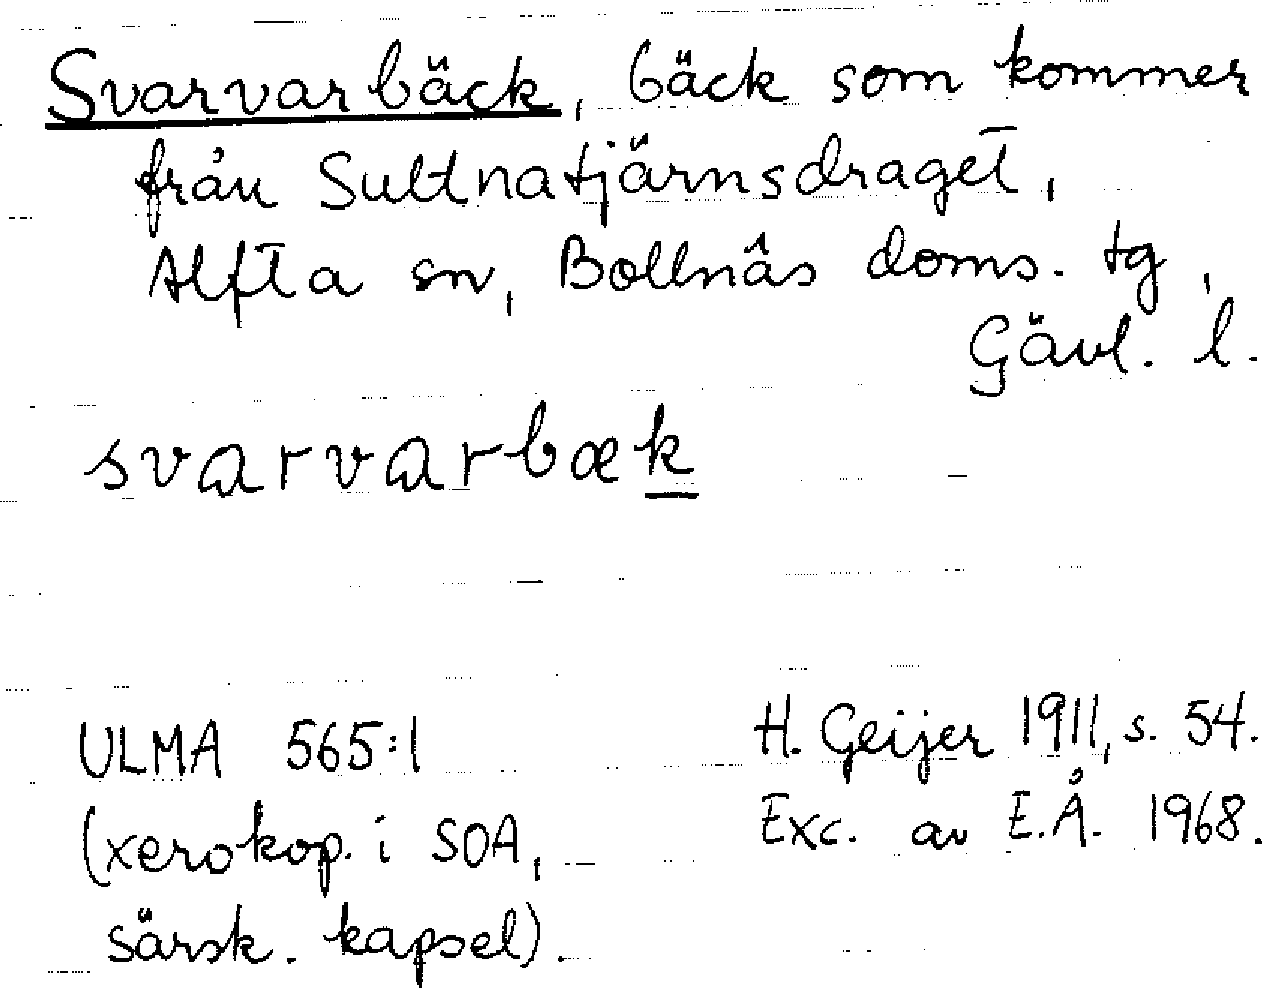 Svarvarbäck, bäck som kommer
från Sultnatjärnsdraget,
Alfta sn, Bollnäs doms. tg,
Gävl. l.
svarvarbæk
ULMA 565:1
H. Geijer 1911, s. 54.
(xerokop. i SOA,
Exc. av E.Å. 1968.
särsk. kapsel).